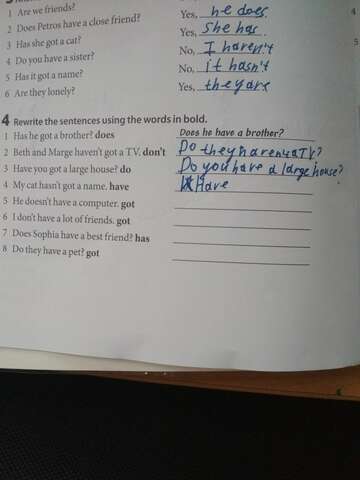 1 Are we friends? Yes, he does.
2 Does Petros have a close friend? Yes, she has.
3 Has she got a cat? No, I haven't
4 Do you have a sister? No, it hasn't
5 Has it got a name? Yes, they are
6 Are they lonely?
4 Rewrite the sentences using the words in bold.
1 Has he got a brother? does Does he have a brother?
2 Beth and Marge haven't got a TV. don't Do they haren4aTV?
3 Have you got a large house? do Do you have a large house?
4 My cat hasn't got a name. have Have
5 He doesn't have a computer. got
6 I don't have a lot of friends. got
7 Does Sophia have a best friend? has
8 Do they have a pet? got
4
5